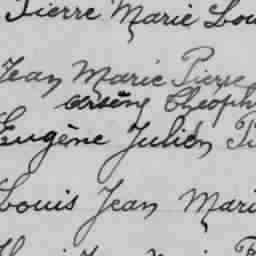 Pierre Marie Lou
Jean Marie Pierre
arsène Théoph
Eugène Julien Pi
Louis Jean Mari